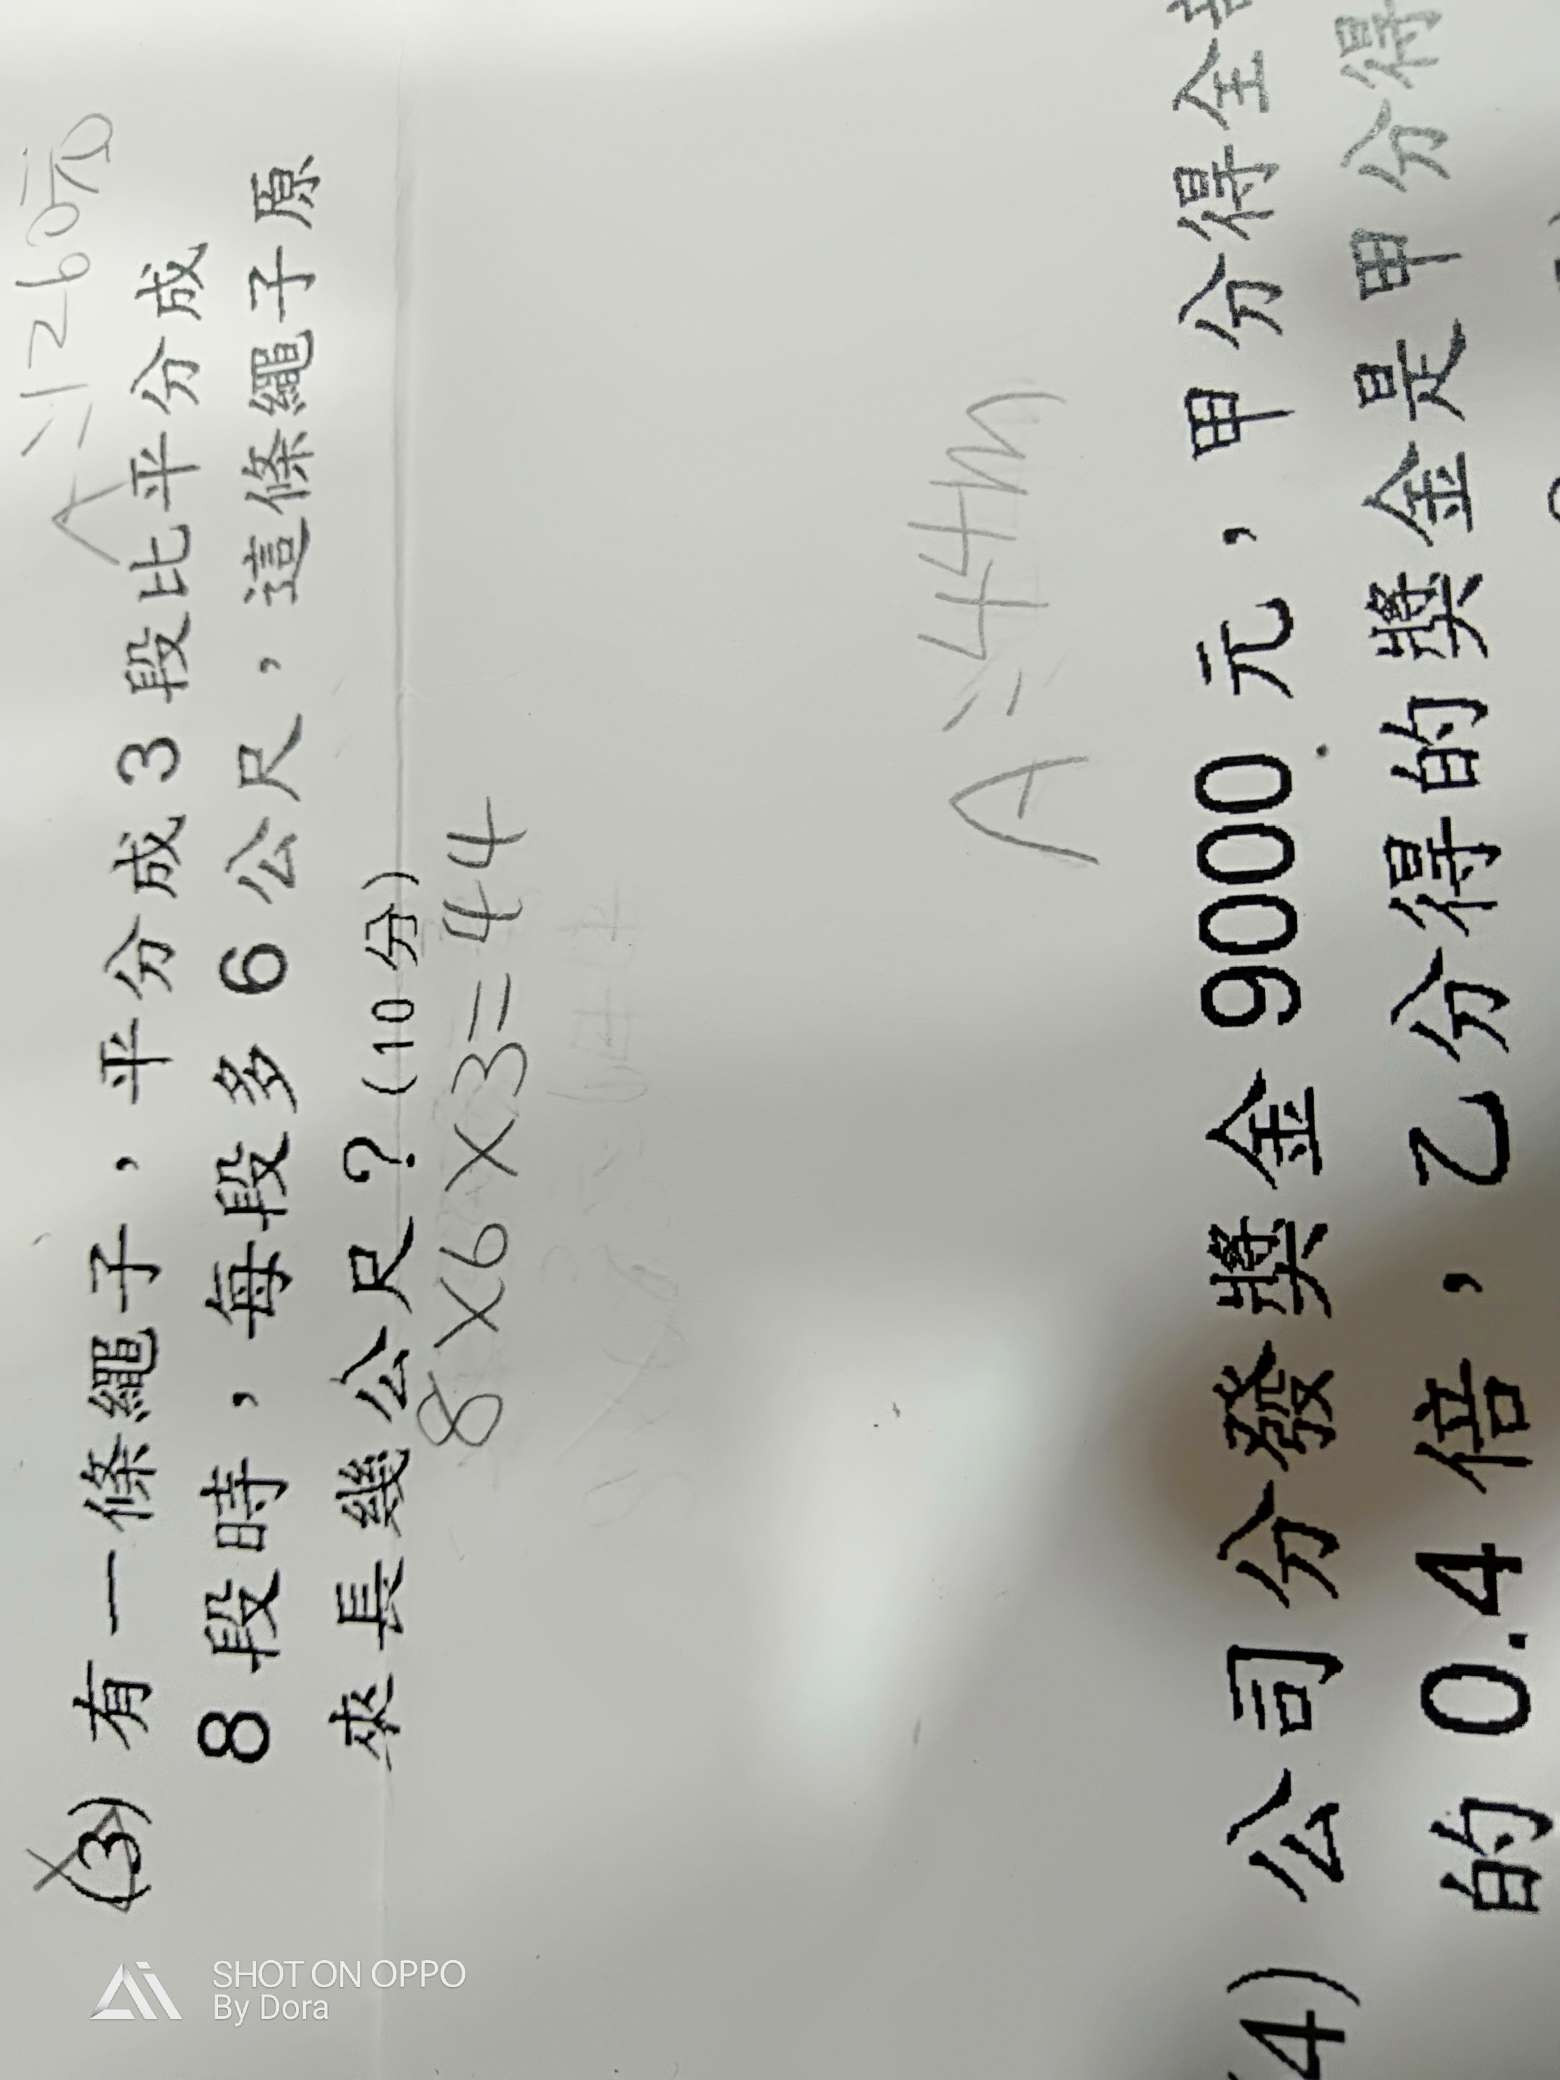 A:1260元
(3) 有一條繩子，平分成 3 段比平分成
8 段時，每段多 6 公尺，這條繩子原
來長幾公尺？(10 分)
8×6×3=44
A:44m
(4) 公司分發獎金 9000 元，甲分得全
的 0.4 倍，乙分得的獎金是甲分得
SHOT ON OPPO
By Dora